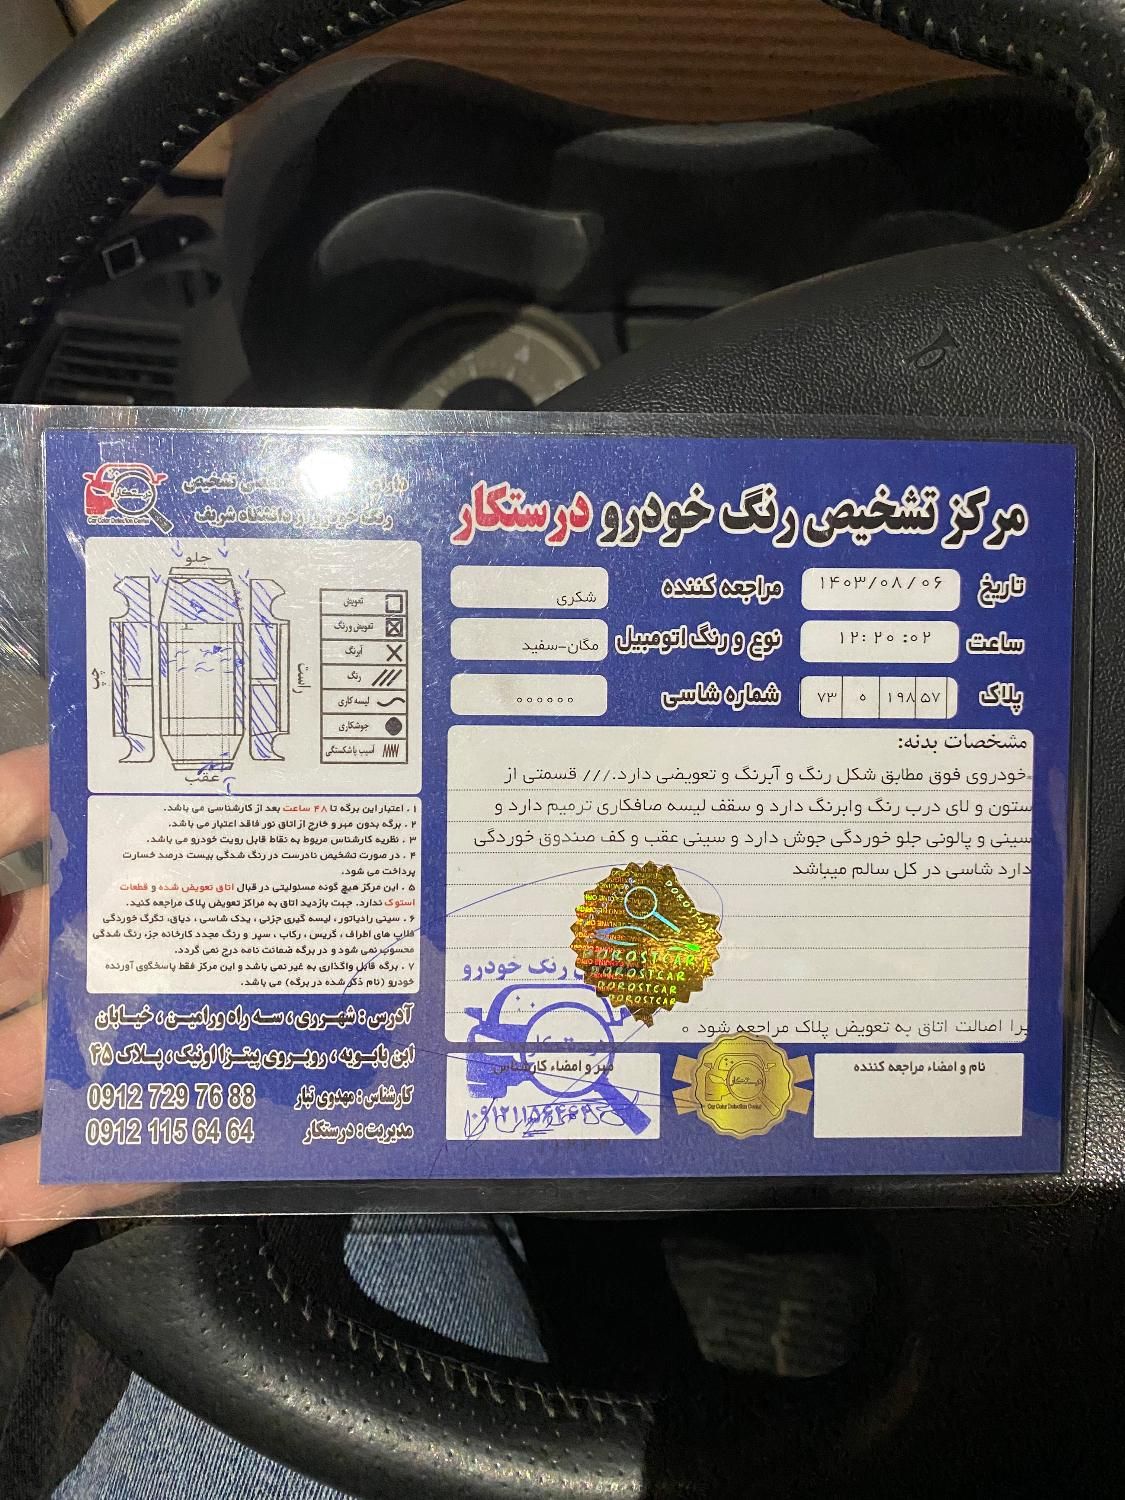 مرکز تشخیص رنگ خودرو درستکار
تشخیص
رنگ خودرو از دانشگاه شریف
Car Color Detection Center
تاریخ ۱۴۰۳/۰۸/۰۶
مراجعه کننده شکری
ساعت ۱۲:۲۰:۰۲
نوع و رنگ اتومبیل مگان-سفید
پلاک ۷۳ ۵ ۱۹۸ ۵۷
شماره شاسی ۰۰۰۰۰۰
جلو
چپ
راست
عقب
تعویض
تعویض و رنگ
آبرنگ
رنگ
لیسه کاری
جوشکاری
آسیب یا شکستگی
مشخصات بدنه:
خودروی فوق مطابق شکل رنگ و آبرنگ و تعویضی دارد./// قسمتی از
ستون و لای درب رنگ وابرنگ دارد و سقف لیسه صافکاری ترمیم دارد و
سینی و پالونی جلو خوردگی جوش دارد و سینی عقب و کف صندوق خوردگی
دارد شاسی در کل سالم میباشد
برا اصالت اتاق به تعویض پلاک مراجعه شود ۰
۱. اعتبار این برگه تا ۴۸ ساعت بعد از کارشناسی می باشد.
۲. برگه بدون مهر و خارج از اتاق نور فاقد اعتبار می باشد.
۳. نظریه کارشناس مربوط به نقاط قابل رویت خودرو می باشد.
۴. در صورت تشخیص نادرست در رنگ شدگی بیست درصد خسارت
پرداخت می شود.
۵. این مرکز هیچ گونه مسئولیتی در قبال اتاق تعویض شده و قطعات
استوک ندارد. جهت بازدید اتاق به مراکز تعویض پلاک مراجعه کنید.
۶. سینی رادیاتور، لیسه گیری جزئی، یدک شاسی، دیاق، تگرگ خوردگی
قلاب های اطراف، گریس، رکاب، سپر و رنگ مجدد کارخانه جزء رنگ شدگی
محسوب نمی شود و در برگه ضمانت نامه درج نمی گردد.
۷. برگه قابل واگذاری به غیر نمی باشد و این مرکز فقط پاسخگوی آورنده
خودرو (نام ذکر شده در برگه) می باشد.
آدرس: شهرری، سه راه ورامین، خیابان
ابن بابویه، روبروی پیتزا اونیک، پلاک ۴۵
کارشناس: مهدوی تبار 0912 729 76 88
مدیریت: درستکار 0912 115 64 64
رنگ خودرو
DOROSTCAR
DOROSTCAR
DOROSTCAR
DOROSTCAR
DOROSTCAR
مهر و امضاء کارشناس
۰۹۱۲۱۱۵۶۴۶۴
درستکار
Car Color Detection Center
نام و امضاء مراجعه کننده